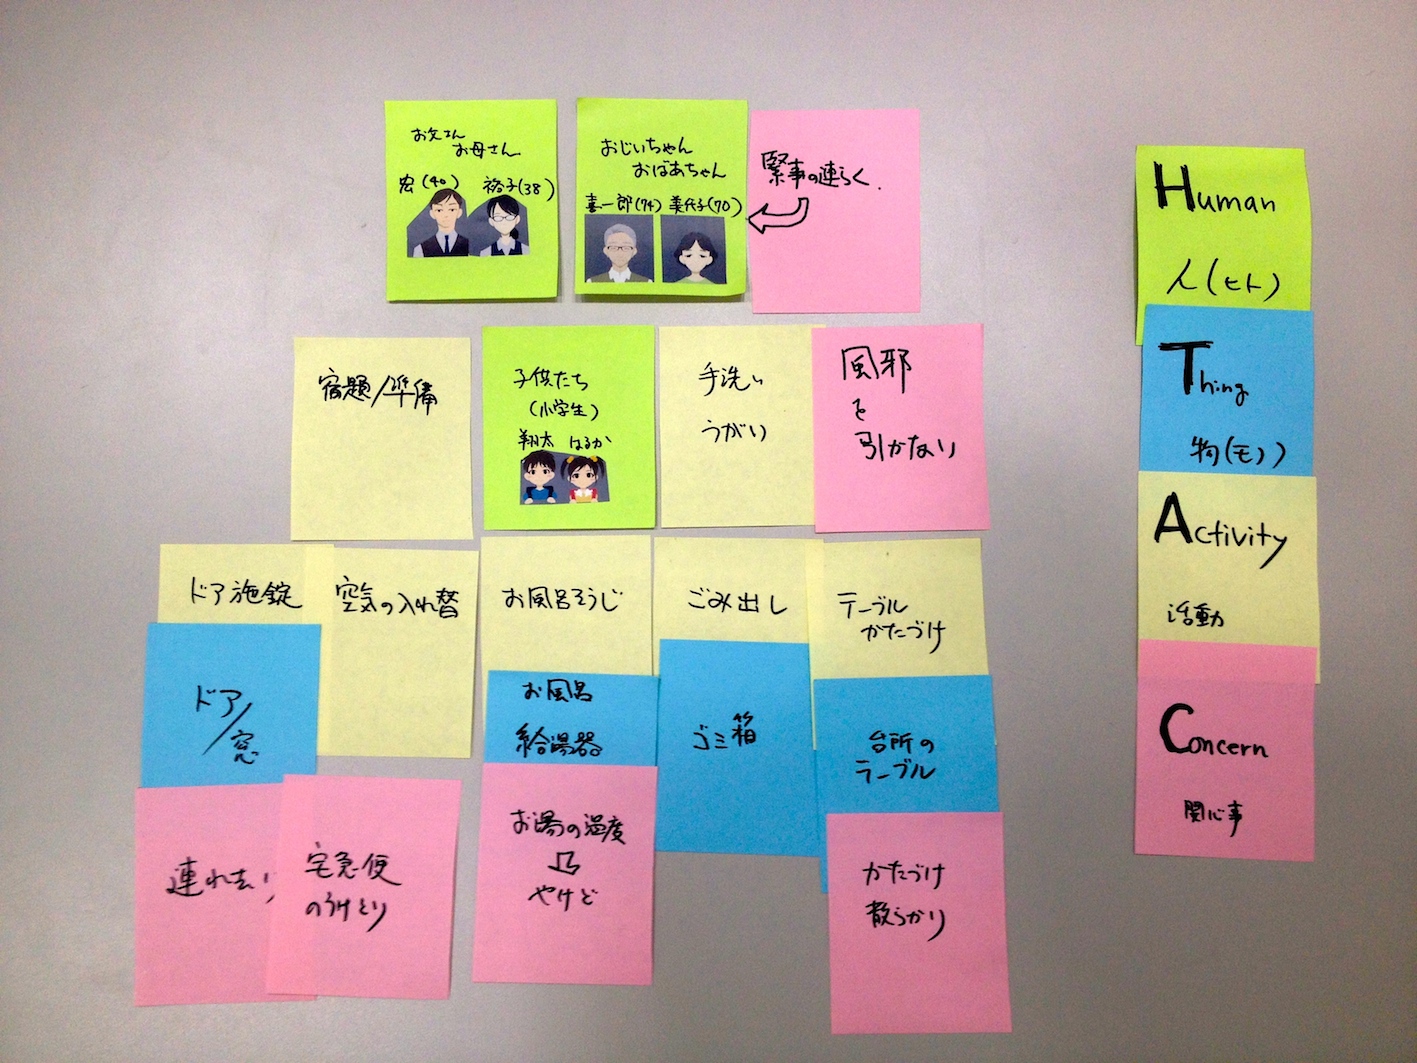 お父さん
お母さん
宏(40) 裕子(38)
おじいちゃん
おばあちゃん
喜一郎(74) 美代子(70)
緊事の連らく.
宿題/準備
子供たち
(小学生)
翔太 はるか
手洗い
うがい
風邪
を
引かない
ドア施錠
空気の入れ替
お風呂そうじ
ごみ出し
テーブル
かたづけ
ドア/
窓
お風呂
給湯器
ゴミ箱
台所の
テーブル
連れ去り
宅急便
のうけとり
お湯の温度
やけど
かたづけ
散らかり
Human
人(ヒト)
Thing
物(モノ)
Activity
活動
Concern
関心事